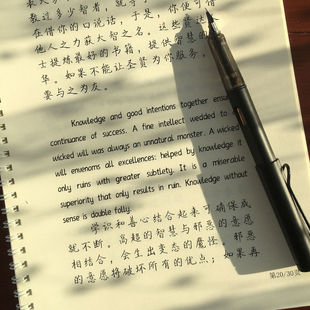 教过多少智者，就等
在借你的口说话，于是，你便可借
他人之力获大智之名。这些贤达
士提炼最好的书籍，提供智慧的
华。如果不能让圣贤为你服务，
要与之为友。
Knowledge and good intentions together ensure
continuance of success. A fine intellect wedded to a
wicked will was always an unnatural monster. A wicked
will envenoms all excellences: helped by knowledge it
only ruins with greater subtlety. It is a miserable
superiority that only results in ruin. Knowledge without
sense is double folly.
学识和善心结合起来可确保成
就不断。高超的智慧与邪恶的意愿
相结合，会生出变态的魔怪。邪恶
的意愿将破坏所有的优点；如果再
第20/30页